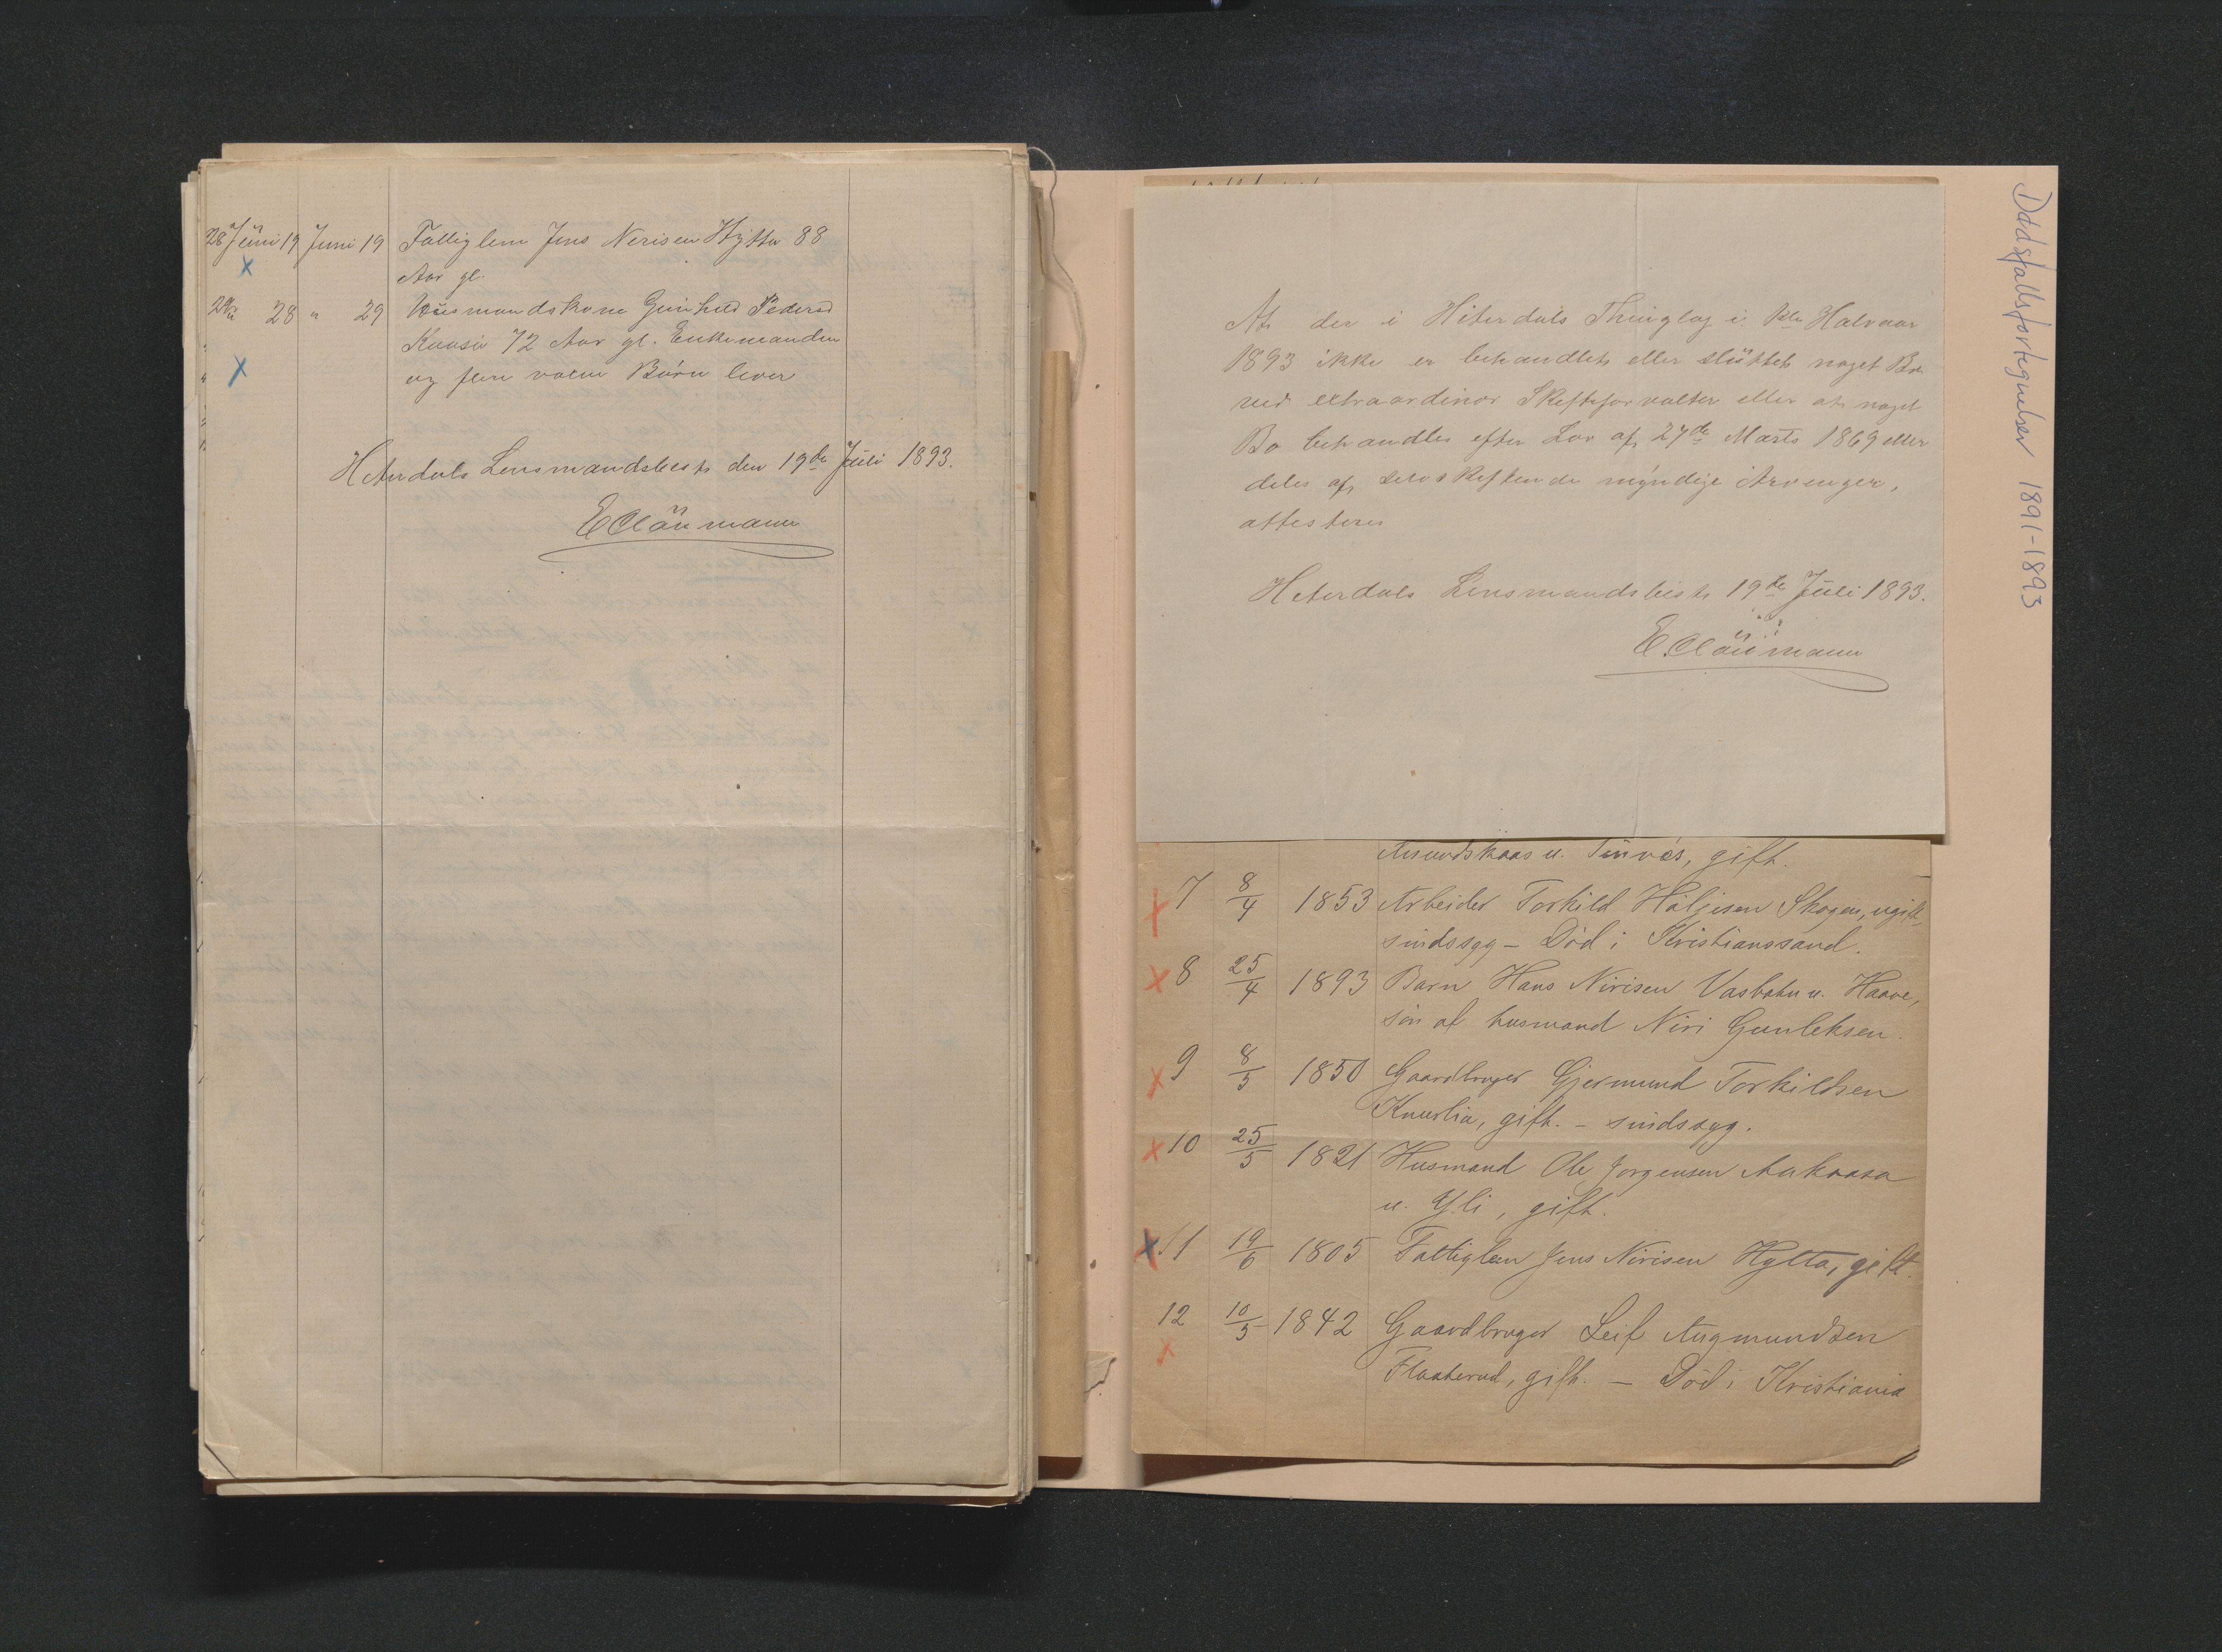 28 Juni 19 Juni 19 Fattiglem Jens Nerisen Hytta 88
Aar gl.
28 " 29 Huusmandskone Gunhild Pedersd
Kaasa 72 Aar gl. Enkemanden
og flere voxne Börn lever
Hiterdals Lensmandsbest. den 19de Juli 1893.
E Claümann
At der i Hiterdals Thinglag i 1ste Halvaar
1893 ikke er behandlet eller sluttet noget Bo
ved extraordinær Skifteforvalter eller at noget
Bo behandles efter Lov af 27de Marts 1869 eller
deles af selvskiftende myndige Arvinger,
attesteres
Hiterdals Lensmandsbest. 19de Juli 1893.
E. Claümann
Dødsfallsfortegnelser 1891-1893
Amundskaas u. Tinnes, gift.
7 8/4 1853 Arbeider Torkild Håljesen Skogen, ugift,
sindssyg - Död i Kristianssand.
8 25/4 1893 Barn Hans Nirisen Vasbotn u. Haave,
sön af husmand Niri Gunleksen.
9 8/5 1850 Gaardbruger Gjermund Torkildsen
Knutlia, gift. - sindssyg.
10 25/5 1821 Husmand Ole Jorgensen Aakaasa
u. Yli, gift.
11 19/6 1805 Fattiglem Jens Nirisen Hytta, gift.
12 10/5 1842 Gaardbruger Leif Aagmundsen
Flaaterud, gift. - Död i Kristiania